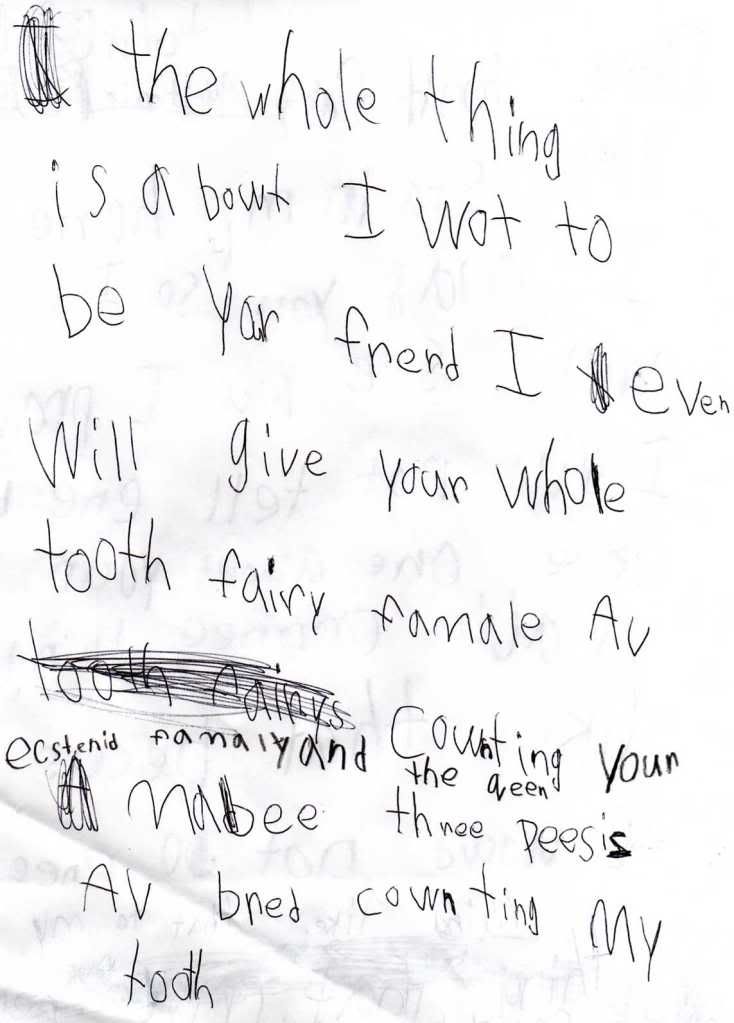 the whole thing
is a bowt I wot to
be Yar frend I even
Will give your whole
tooth fairy famale Av
tooth fairys Counting your
ecstenid famaly and the qeen
mabee three peesis
Av bred cownting My
tooth